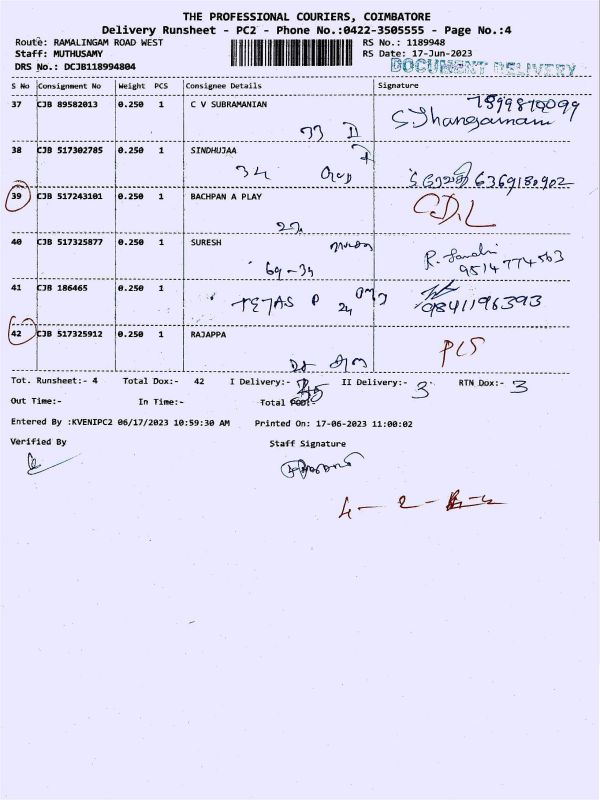 THE PROFESSIONAL COURIERS, COIMBATORE
Delivery Runsheet - PC2 - Phone No.:0422-3505555 - Page No.:4
Route: RAMALINGAM ROAD WEST RS No.: 1189948
Staff: MUTHUSAMY RS Date: 17-Jun-2023
DRS No.: DCJB118994804 DOCUMENT DELIVERY
S No Consignment No Weight PCS Consignee Details Signature
37 CJB 89582013 0.250 1 C V SUBRAMANIAN
S.Thangamani
38 CJB 517302785 0.250 1 SINDHUJAA
34 6369180902
39 CJB 517243101 0.250 1 BACHPAN A PLAY
40 CJB 517325877 0.250 1 SURESH
69-34 9514774563
41 CJB 186465 0.250 1
TEJAS P 24 9841196393
42 CJB 517325912 0.250 1 RAJAPPA
Tot. Runsheet:- 4 Total Dox:- 42 I Delivery:- II Delivery:- 3 RTN Dox:- 3
Out Time:- In Time:- Total POD:-
Entered By :KVENIPC2 06/17/2023 10:59:30 AM Printed On: 17-06-2023 11:00:02
Verified By Staff Signature
4 - 2 -